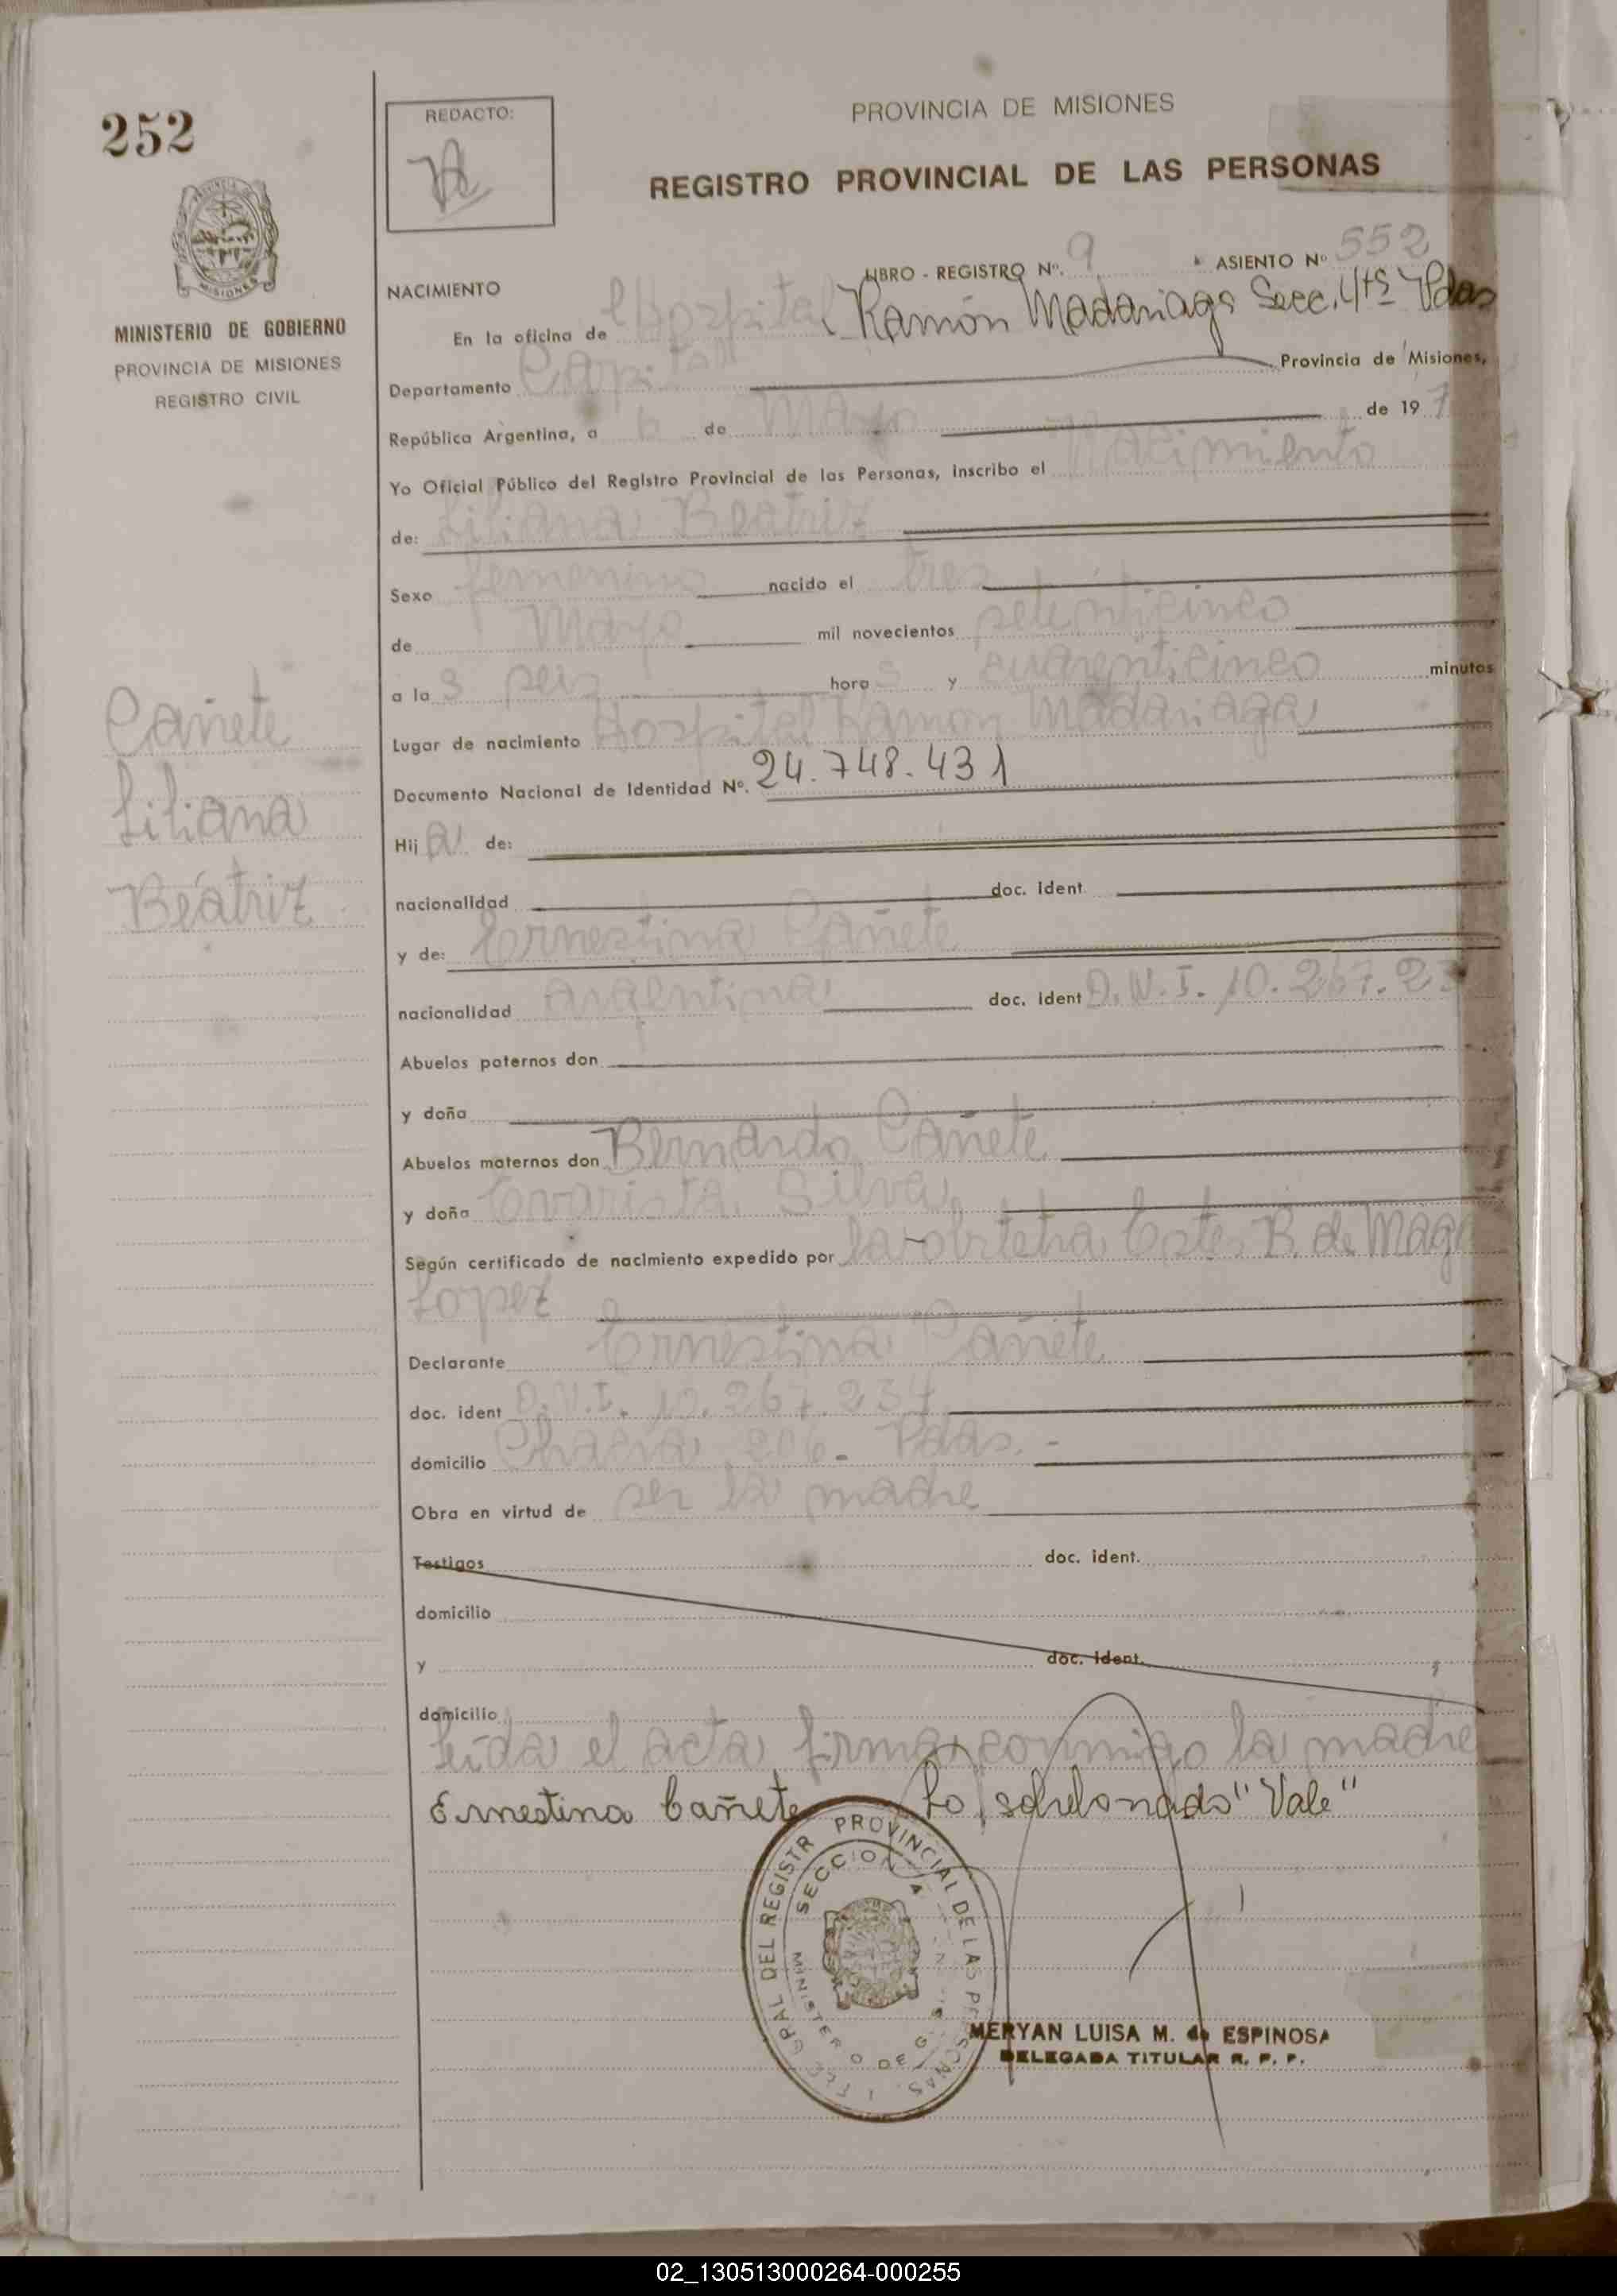 252
REDACTO:
PROVINCIA DE MISIONES
REGISTRO PROVINCIAL DE LAS PERSONAS
MINISTERIO DE GOBIERNO
PROVINCIA DE MISIONES
REGISTRO CIVIL
LIBRO - REGISTRO Nº. 9 ASIENTO Nº 552
NACIMIENTO
En la oficina de Hospital Ramón Madariaga Secc. 4ta Pdas
Departamento Capital Provincia de Misiones,
República Argentina, a 6 de Mayo de 197
Yo Oficial Público del Registro Provincial de las Personas, inscribo el Nacimiento
de: Liliana Beatriz
Sexo femenino nacido el tres
de Mayo mil novecientos setenticinco
a las seis horas y cuarenticinco minutos
Lugar de nacimiento Hospital Ramon Madariaga
Documento Nacional de Identidad Nº. 24.748.431
Hija de:
nacionalidad doc. ident.
y de: Ernestina Cañete
nacionalidad argentina doc. ident D.N.I. 10.267.23
Abuelos paternos don
y doña
Abuelos maternos don Bernardo Cañete
y doña Evarista Silva
Según certificado de nacimiento expedido por la obstetra Ester B. de Mag
Lopez
Declarante Ernestina Cañete
doc. ident D.N.I. 10.267.237
domicilio Chacra 206 - Pdas. -
Obra en virtud de ser la madre
Testigos doc. ident.
domicilio
y doc. ident.
domicilio
Leída el acta firma conmigo la madre
Ernestina Cañete Lo sobrelonado "Vale"
Cañete
Liliana
Beatriz
GRAL DEL REGISTR PROVINCIAL DE LAS PERSONAS
SECCION
MINISTERIO DE G
MERYAN LUISA M. de ESPINOSA
DELEGADA TITULAR R. P. P.
02_130513000264-000255